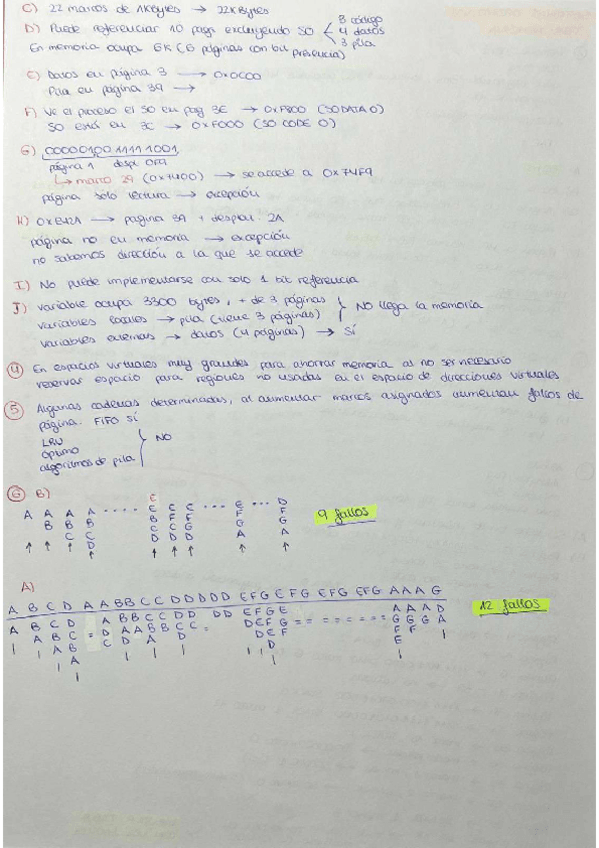 C) 22 marcos de 1KBytes → 22KBytes
D) Puede referenciar 10 pags excluyendo SO
3 código
4 datos
3 pila
En memoria ocupa 6K (6 páginas con bit presencia)
E) Datos en página 3 → 0x0C00
Pila en página 39 →
F) Ve el proceso el SO en pag 3E → 0xF800 (SODATA 0)
SO está en 3C → 0xF000 (SO CODE 0)
G) 0000010011111001
página 1 despl 0F9
↳ marco 29 (0x7400) → se accede a 0x74F9
página solo lectura → excepción
H) 0xE42A → página 39 + desplaz. 2A
página no en memoria → excepción
no sabemos dirección a la que se accede
I) No puede implementarse con solo 1 bit referencia
J) variable ocupa 3300 bytes, + de 3 páginas
variables locales → pila (tiene 3 páginas)
NO llega la memoria
variables externas → datos (4 páginas) → Sí
4 En espacios virtuales muy grandes para ahorrar memoria al no ser necesario
reservar espacio para regiones no usadas en el espacio de direcciones virtuales
5 Algunas cadenas determinadas, al aumentar marcos asignados aumentan fallos de
página. FIFO sí
LRU
óptimo
algoritmos de pila
NO
6 B)
E
A A A A .... E E E ... E ... D
B B B B F E F F
C C C C G G G
D D D D A A
↑ ↑ ↑ ↑ ↑ ↑ ↑ ↑ ↑
9 fallos
A)
A B C D A A B B C C D D D D D E F G E F G E F G E F G A A A G
12 fallos